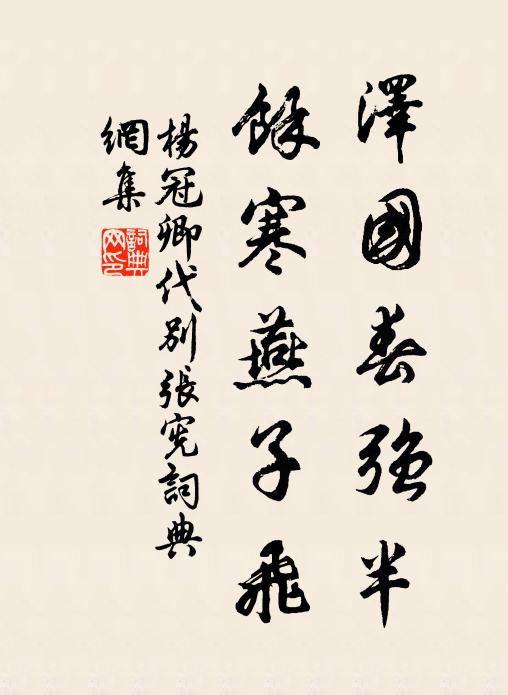 澤國春強半
餘寒燕子飛
楊冠卿代別張憲詞典
網集
詞典網印